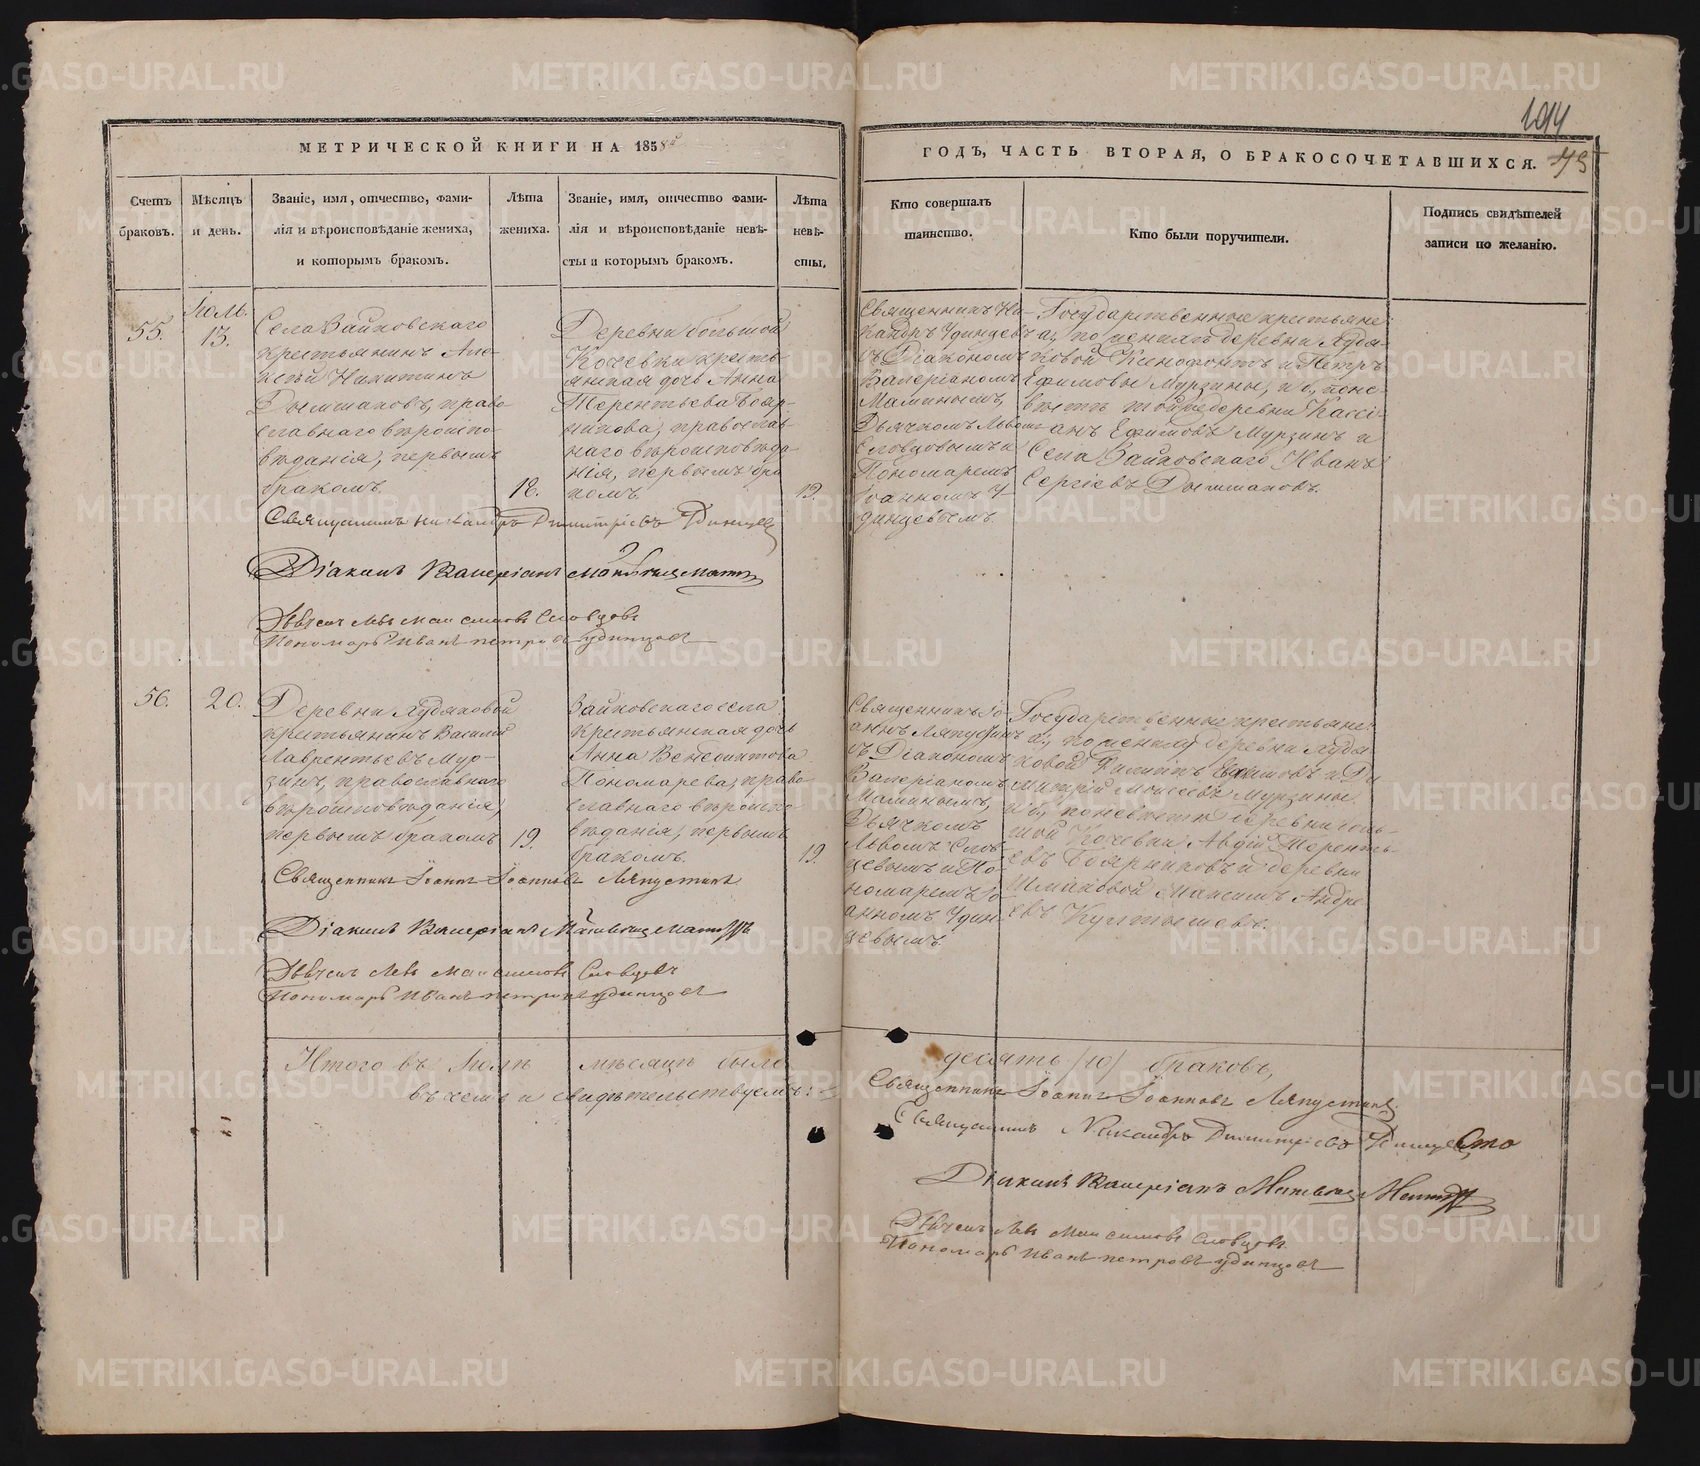 194
МЕТРИЧЕСКОЙ КНИГИ НА 1858й
ГОДЪ, ЧАСТЬ ВТОРАЯ, О БРАКОСОЧЕТАВШИХСЯ.
Счетъ
браковъ.
Мѣсяцъ
и день.
Званіе, имя, отчество, фами-
лія и вѣроисповѣданіе жениха,
и которымъ бракомъ.
Лѣта
жениха.
Званіе, имя, отчество фами-
лія и вѣроисповѣданіе невѣ-
сты и которымъ бракомъ.
Лѣта
невѣ-
сты.
Кто совершалъ
таинство.
Кто были поручители.
Подпись свидѣтелей
записи по желанію.
55.
Іюль.
13.
Села Зайковскаго
крестьянинъ Але-
ксѣй Никитинъ
Дымшаковъ, право-
славнаго вѣроиспо-
вѣданія, первымъ
бракомъ.
18.
Деревни большой
Кочевки кресть-
янская дочь Анна
Терентьева Бояр-
никова, православ-
наго вѣроисповѣда-
нія, первымъ бра-
комъ.
19.
Священникъ Ни-
кандръ Удинцевъ
съ Діакономъ
Валеріаномъ
Маминымъ,
Дьячкомъ Львомъ
Словцовымъ и
Пономаремъ
Іоанномъ У-
динцевымъ.
Государственные крестьяне:
а, по женихѣ деревни Худя-
ковой Ксенофонтъ и Петръ
Ефимовы Мурзины, и б, по не-
вѣстѣ той же деревни Кассі-
анъ Ефимовъ Мурзинъ и
Села Зайковскаго Иванъ
Сергіевъ Дымшаковъ.
Священникъ Никандръ Димитріевъ Удинцевъ
Діаконъ Валеріанъ
Дьячекъ Левъ Максимовъ Словцовъ
Пономарь Иванъ Петровъ Удинцовъ
56.
20.
Деревни Худяковой
крестьянинъ Василій
Лаврентьевъ Мур-
зинъ, православнаго
вѣроисповѣданія,
первымъ бракомъ
19.
Зайковскаго села
крестьянская дочь
Анна
Пономарева, право-
славнаго вѣроиспо-
вѣданія, первымъ
бракомъ.
19.
Священникъ Іо-
аннъ Ляпустинъ
съ Діакономъ
Валеріаномъ
Маминымъ,
Дьячкомъ
Львомъ Слов-
цевымъ и По-
номаремъ Іо-
анномъ Удин-
цевымъ.
Государственные крестьяне:
а, по женихѣ деревни Худя-
ковой Филиппъ Ефимовъ и Ди-
митрій Моисеевъ Мурзины.
и б, по невѣстѣ деревни боль-
шой Кочевки Авдій Теренть-
евъ Боярниковъ и деревни
Максимъ Андре-
евъ
Священникъ Іоаннъ Іоанновъ Ляпустинъ
Діаконъ Валеріанъ
Дьячекъ Левъ Максимовъ Словцовъ
Пономарь Иванъ Петровъ Удинцовъ
Итого въ Іюлѣ мѣсяцѣ было десять /10/ браковъ,
въ чемъ и свидѣтельствуемъ:
Священникъ Іоаннъ Іоанновъ Ляпустинъ
Священникъ Никандръ Димитріевъ Удинцевъ
Діаконъ Валеріанъ
Дьячекъ Левъ Максимовъ Словцовъ
Пономарь Иванъ Петровъ Удинцовъ
METRIKI.GASO-URAL.RU